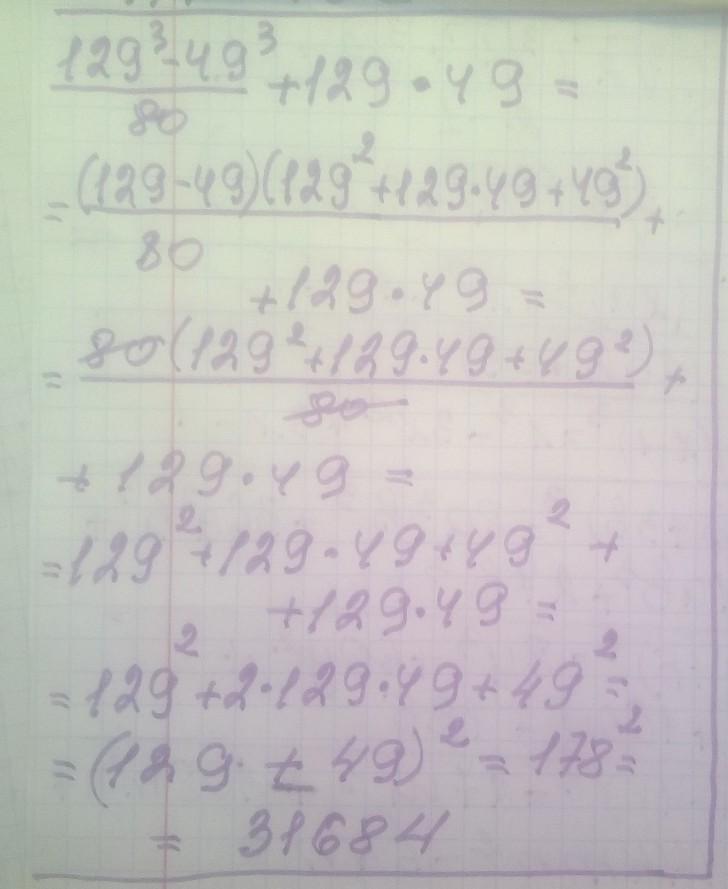 129³-49³/80 + 129 • 49 =
= (129-49)(129²+129·49+49²)/80 +
+129·49 =
= 80(129²+129·49+49²)/80 +
+ 129·49 =
= 129²+129·49+49² +
+129·49 =
= 129²+2·129·49+49² =
= (129 + 49)² = 178² =
= 31684